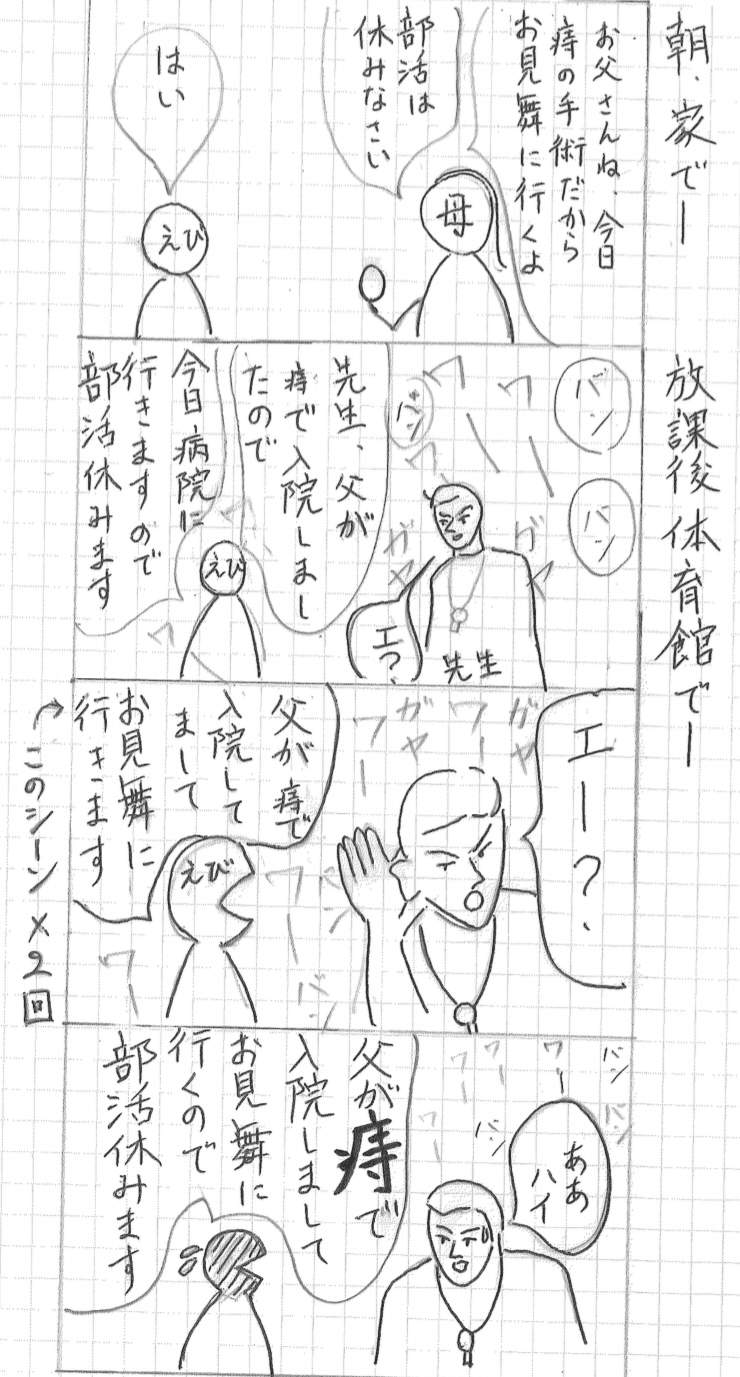 朝、家でー
お父さんね、今日
痔の手術だから
お見舞に行くよ
部活は
休みなさい
母
はい
えび
放課後体育館でー
バン
バン
バン
ワー
ワー
ワ
ガヤ
ガヤ
エ?
先生
先生、父が
痔で入院しまし
たので
今日病院に
行きますので
部活休みます
えび
ワー
エー?
ガヤ
ワー
ガヤ
ワー
父が痔で
入院して
まして
お見舞に
行きます
えび
バン
ワー
バン
ワー
このシーン×2回
バン
バン
ワー
ワー
ワー
ワー
バン
ああ
ハイ
父が痔で
入院しまして
お見舞に
行くので
部活休みます